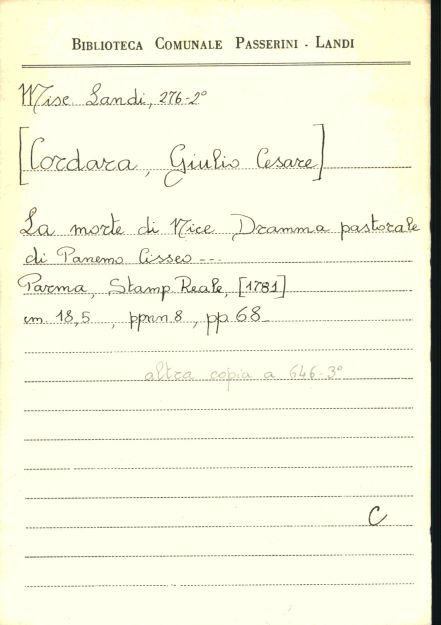 BIBLIOTECA COMUNALE PASSERINI - LANDI
Misc. Landi, 276-2°
[Cordara, Giulio Cesare]
La morte di Nice Dramma pastorale
di Panemo Cisseo ---
Parma, Stamp. Reale, [1781]
cm 18,5, ppnn 8, pp 68
altra copia a 646-3°
C